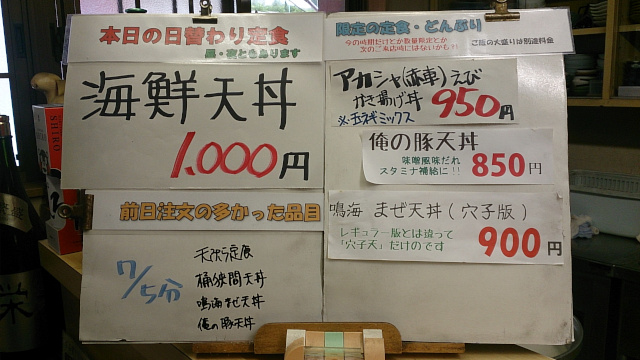 本日の日替わり定食
昼・夜ともあります
海鮮天丼
1.000円
前日注文の多かった品目
7/5分
天ぷら定食
桶狭間天丼
鳴海まぜ天丼
俺の豚天丼
限定の定食・どんぶり
今の時期だけとか数量限定とか
次のご来店時にはないかも!!
ご飯の大盛りは別途料金
アカシャ(赤車)えび
かき揚げ丼 950円
※玉ネギミックス
俺の豚天丼
味噌風味だれ
スタミナ補給に!! 850円
鳴海 まぜ天丼(穴子版)
レギュラー版とは違って
「穴子天」だけのです 900円